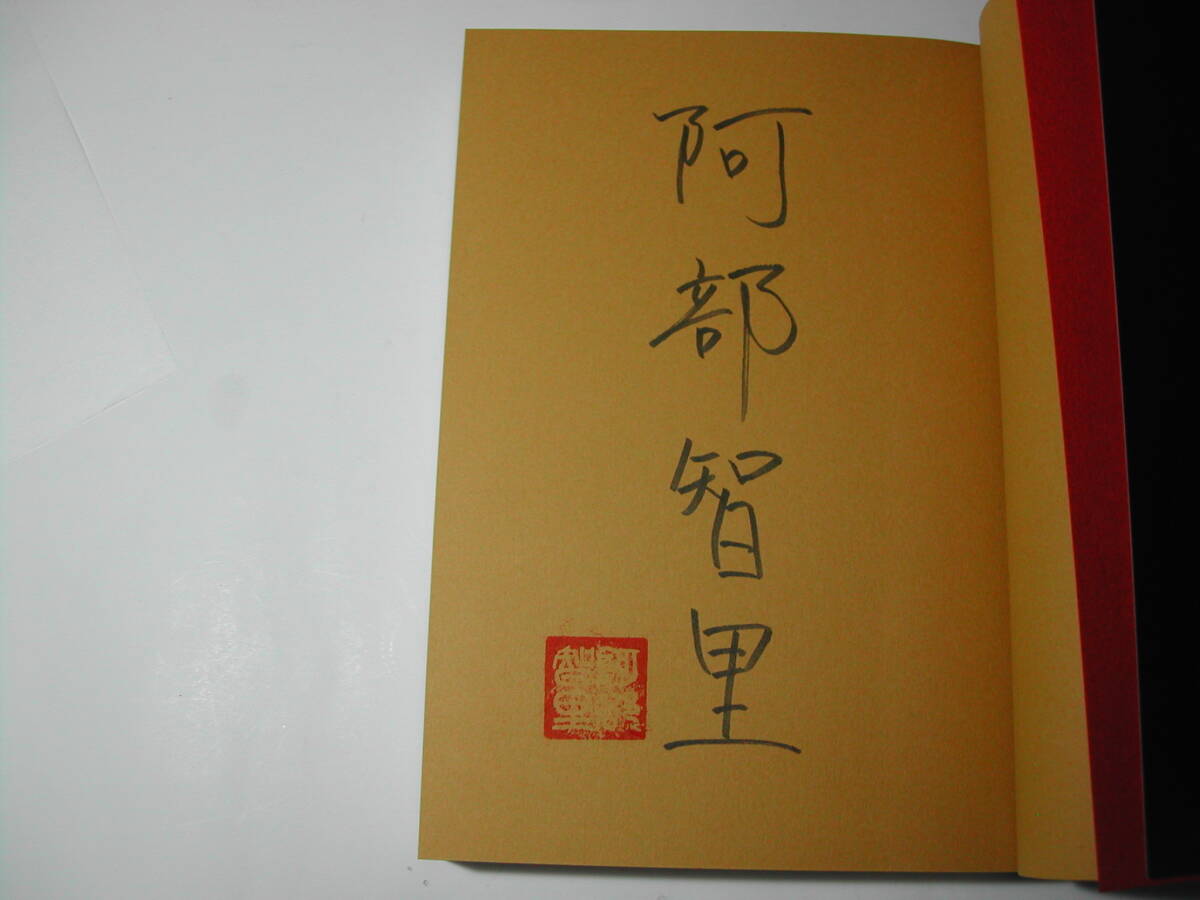 阿部智里